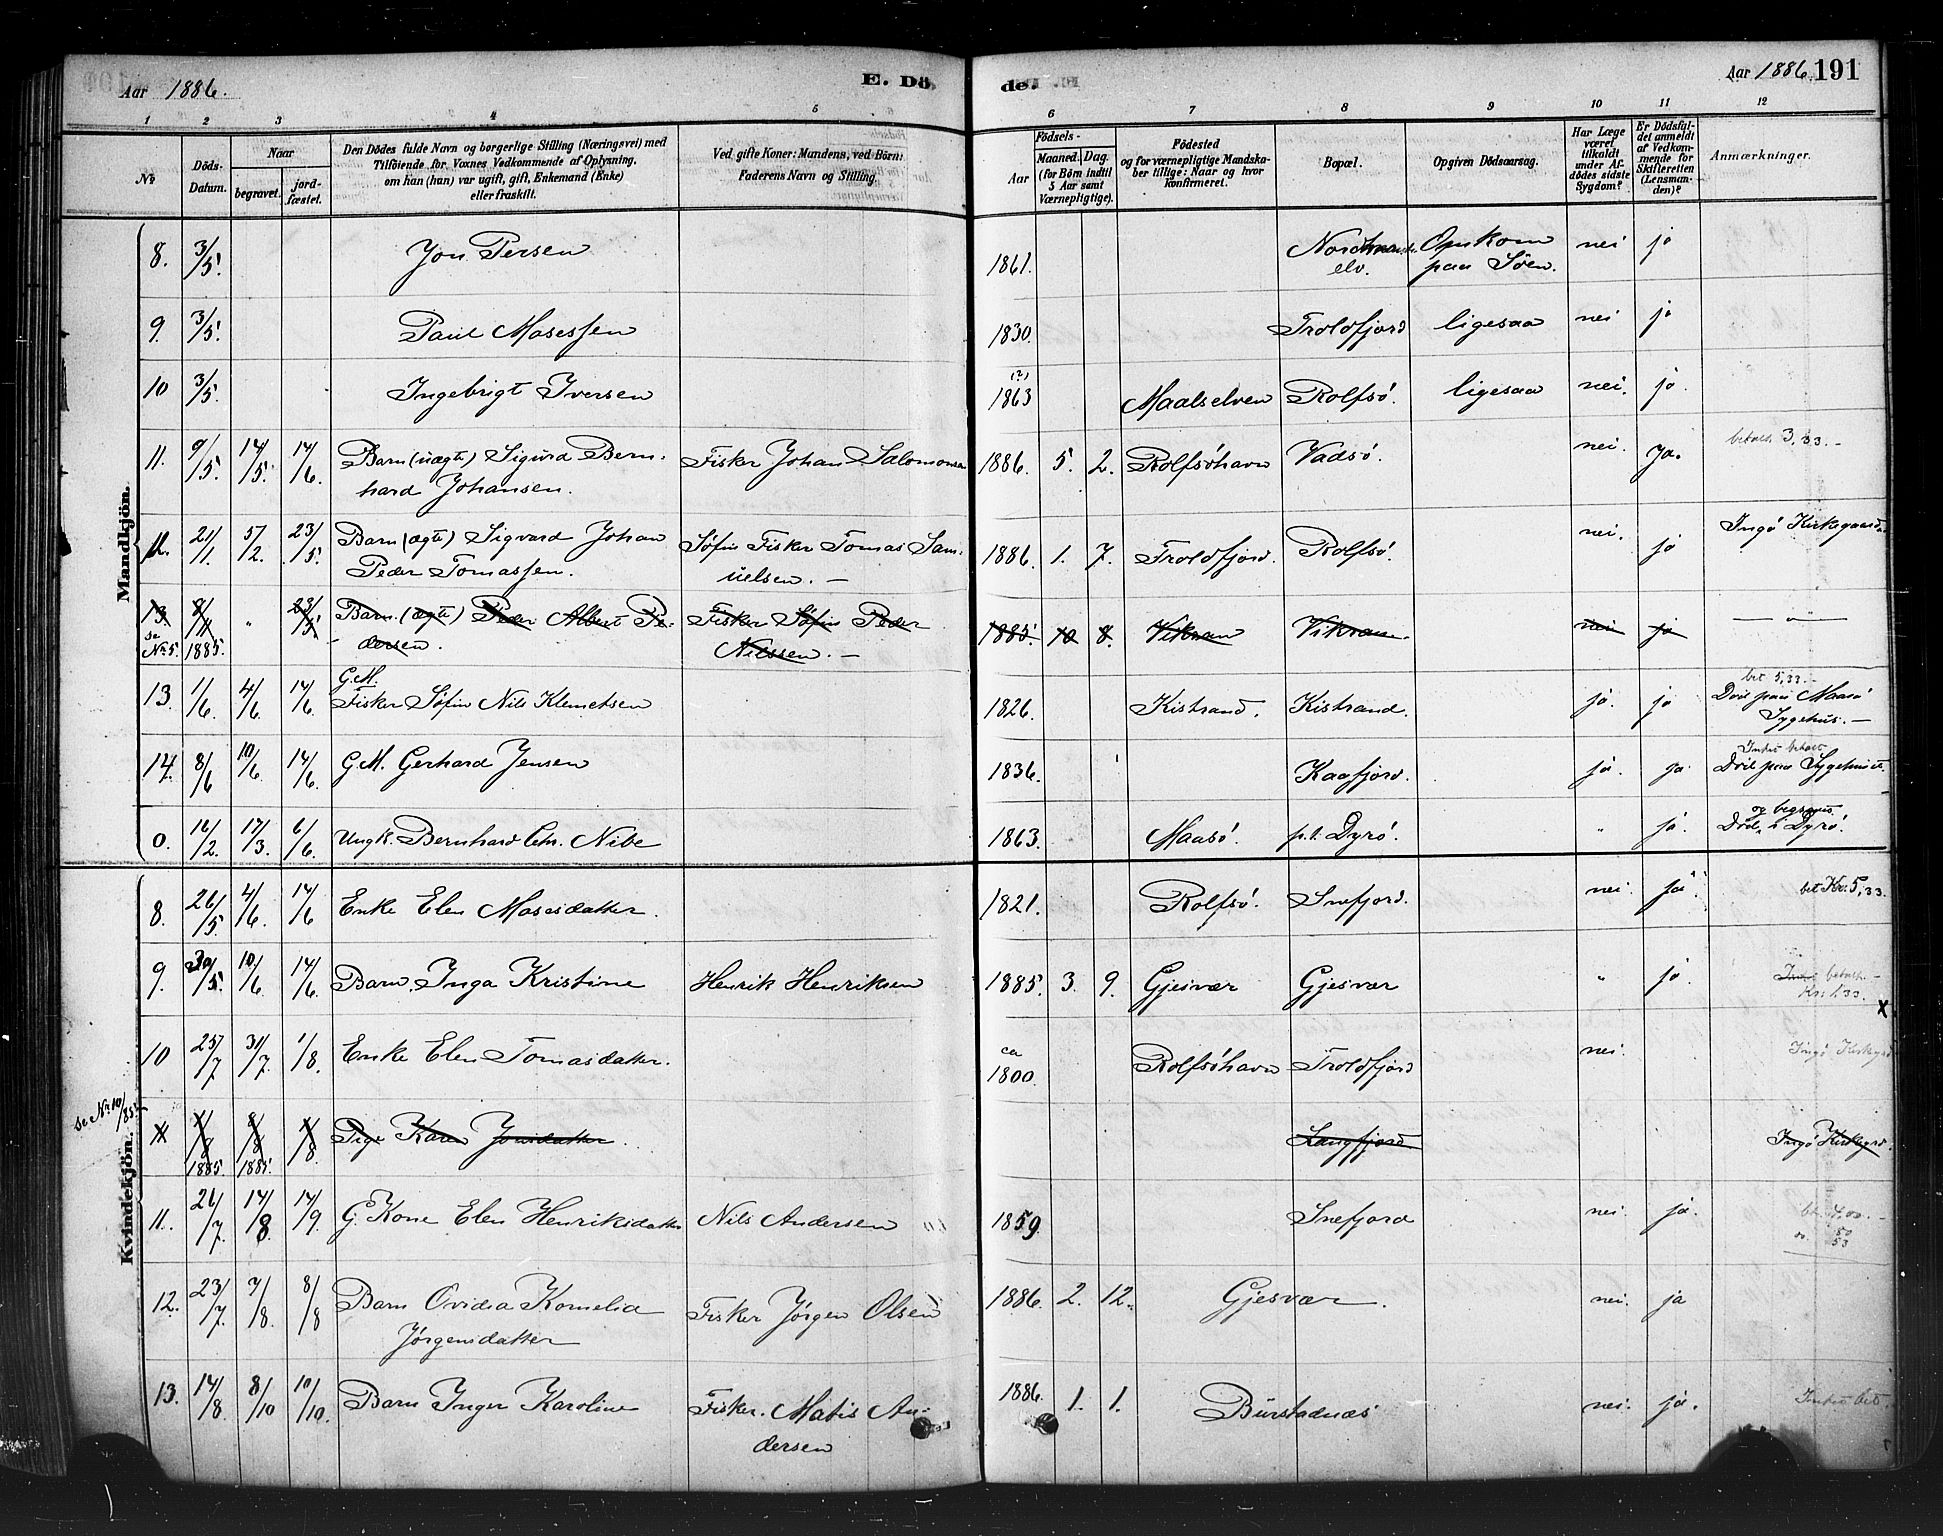 Aar 1886. E. Dö- de. Aar 1886. 191
1 2 3 4 5 6 7 8 9 10 11 12
No Döds-Datum. Naar begravet. jordfæstet. Den Dödes fulde Navn og borgerlige Stilling (Næringsvei) med Tilföiende for Voxnes Vedkommende af Oplysning, om han (hun) var ugift, gift, Enkemand (Enke) eller fraskilt. Ved gifte Koner: Mandens, ved Börn: Faderens Navn og Stilling. Födsels- Aar Maaned. Dag. (for Börn indtil 5 Aar samt Værnepligtige). Födested og for værnepligtige Mandskaber tillige: Naar og hvor konfirmeret. Bopæl. Opgiven Dödsaarsag. Har Læge været tilkaldt under Afdödes sidste Sygdom? Er Dödsfaldet anmeldt af Vedkommende for Skifteretten (Lensmanden)? Anmærkninger.
Mandkjön.
8. 3/5. Jon Persen 1861. elv. Omkom paa Søen. nei jo
9. 3/5. Paul Mosessen 1830. Troldfjord ligesaa nei jo
10 3/5. Ingebrigt Iversen (?) 1863 Maalselven Rolfsö. ligesaa nei. jo.
11. 9/5. 14/5. 14/6. Barn (uægte) Sigurd Bernhard Johansen. Fisker Johan Salomonsen 1886. 5. 2. Rolfsöhavn Vadsö. nei. ja. betalt 3,33.-
12. 21/1. 5/2. 23/5. Barn (ægte) Sigvard Johan Peder Tomassen. Søfin Fisker Tomas Samuelsen.- 1886. 1. 7. Troldfjord. Rolfsö. nei. jo Ingö Kirkegaard.
13 se No 5. 8/11 1885. " 23/5 Barn (ægte) Peder Albert Pedersen. Fisker Søfin Peder Nilssen.- 1885. 10 8. Vikran Vikran. nei jo — " —
13. 1/6. 4/6. 14/6. G.M. Fisker Søfin Nils Klemetsen 1826. Kistrand. Kistrand. jo. jo bet 5,33.- Död paa Maasö Sygehus.-
14. 8/6 10/6. 14/6. G.M. Gerhard Jensen 1836. Kaafjord. jo. ja Intet betalt Död paa Sygehuset.
0. 16/2. 17/3. 6/6. Ungk. Bernhard Chr. Nibe 1863. Maasö. p.t. Dyrö. " jo. Död og begravet i Dyrö.
Kvindekjön.
8. 26/5. 4/6. 14/6 Enke Elen Mosesdatter. 1821. Rolfsö. Snefjord. nei. ja. bet Kr. 5,33
9. 30/5. 10/6. 14/6. Barn. Inga Kristine Henrik Henriksen 1885. 3. 9. Gjesvær Gjesvær " jo. Intet betalt Kr. 1.33. x
10 25/7 31/7. 1/8. Enke Elen Tomasdatter. ca 1800. Rolfsöhavn Troldfjord nei. Ingö Kirkgrd
se No 10/85.
8/8 1885. Pige Karen Jonsdatter. Langfjord Ingö Kirkgrd.
11. 26/7. 14/8. 14/9. G. Kone Elen Henriksdatter Nils Andersen 1859. Snefjord nei. jo.
12. 23/7. 3/8. 8/8 Barn Ovidia Kornelia Jørgensdatter Fisker Jørgen Olsen 1886. 2. 12. Gjesvær. nei. ja
13. 14/8. 8/10 10/10. Barn Inger Karoline Fisker. Matis Andersen 1886. 1. 1. Burstadnæs nei. jo. Intet bet.